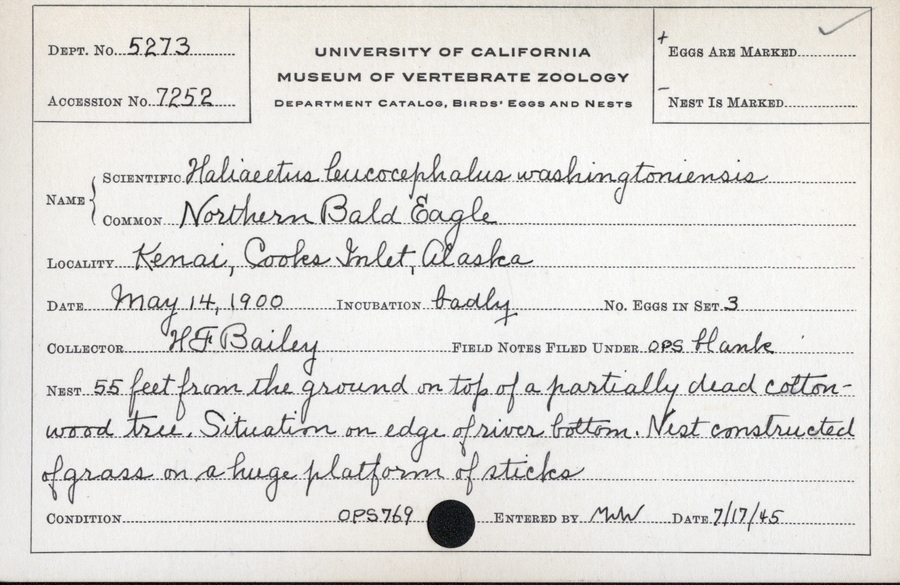 DEPT. NO. 5273
ACCESSION NO. 7252
UNIVERSITY OF CALIFORNIA
MUSEUM OF VERTEBRATE ZOOLOGY
DEPARTMENT CATALOG, BIRDS' EGGS AND NESTS
+ EGGS ARE MARKED ✓
- NEST IS MARKED
NAME
SCIENTIFIC Haliaeetus leucocephalus washingtoniensis
COMMON Northern Bald Eagle
LOCALITY Kenai, Cooks Inlet, Alaska
DATE May 14, 1900 INCUBATION badly NO. EGGS IN SET 3
COLLECTOR HF Bailey FIELD NOTES FILED UNDER OPS blank
NEST 55 feet from the ground on top of a partially dead cotton-
wood tree. Situation on edge of river bottom. Nest constructed
of grass on a huge platform of sticks
CONDITION OPS 769 ENTERED BY MWW DATE 7/17/45